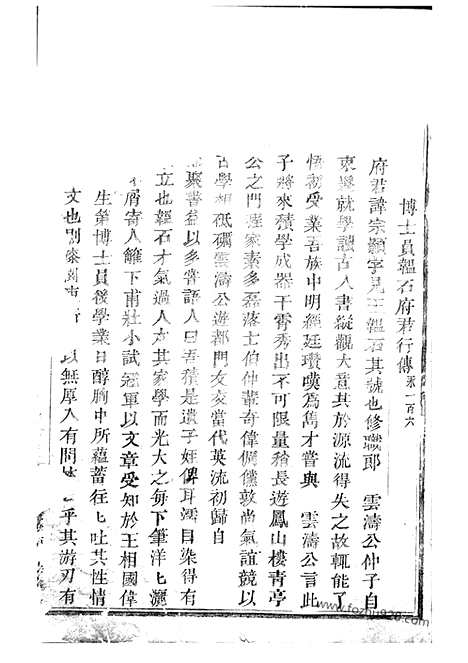 博士員韞石府君行傳 來一百六
府君諱宗顥字見三韞石其號也修職郎 雲濤公仲子自
束髮就學讀古人書縱觀大意其於源流得失之故輒能了
悟初受業吾族中明經廷瓚嘆爲雋才嘗與 雲濤公言此
子將來積學成器干霄秀出不可限量稍長遊鳳山樓青亭
公之門羅家素多磊落士伯仲輩奇偉倜儻敦尚氣誼競以
古學相砥礪雲濤公遊都門友交當代英流初歸自
聚書益以多嘗語人曰吾積是遺子姪俾耳濡目染得有
立也韞石才氣過人於其家學而光大之每下筆洋匕灑
屑寄人籬下甫壯小試冠軍以文章受知於王相國偉
生第博士員後學業日醇胸中所蘊蓄往匕吐其性情
文也 以無厚入有間 乎其游刃有
www.fozhu920.com